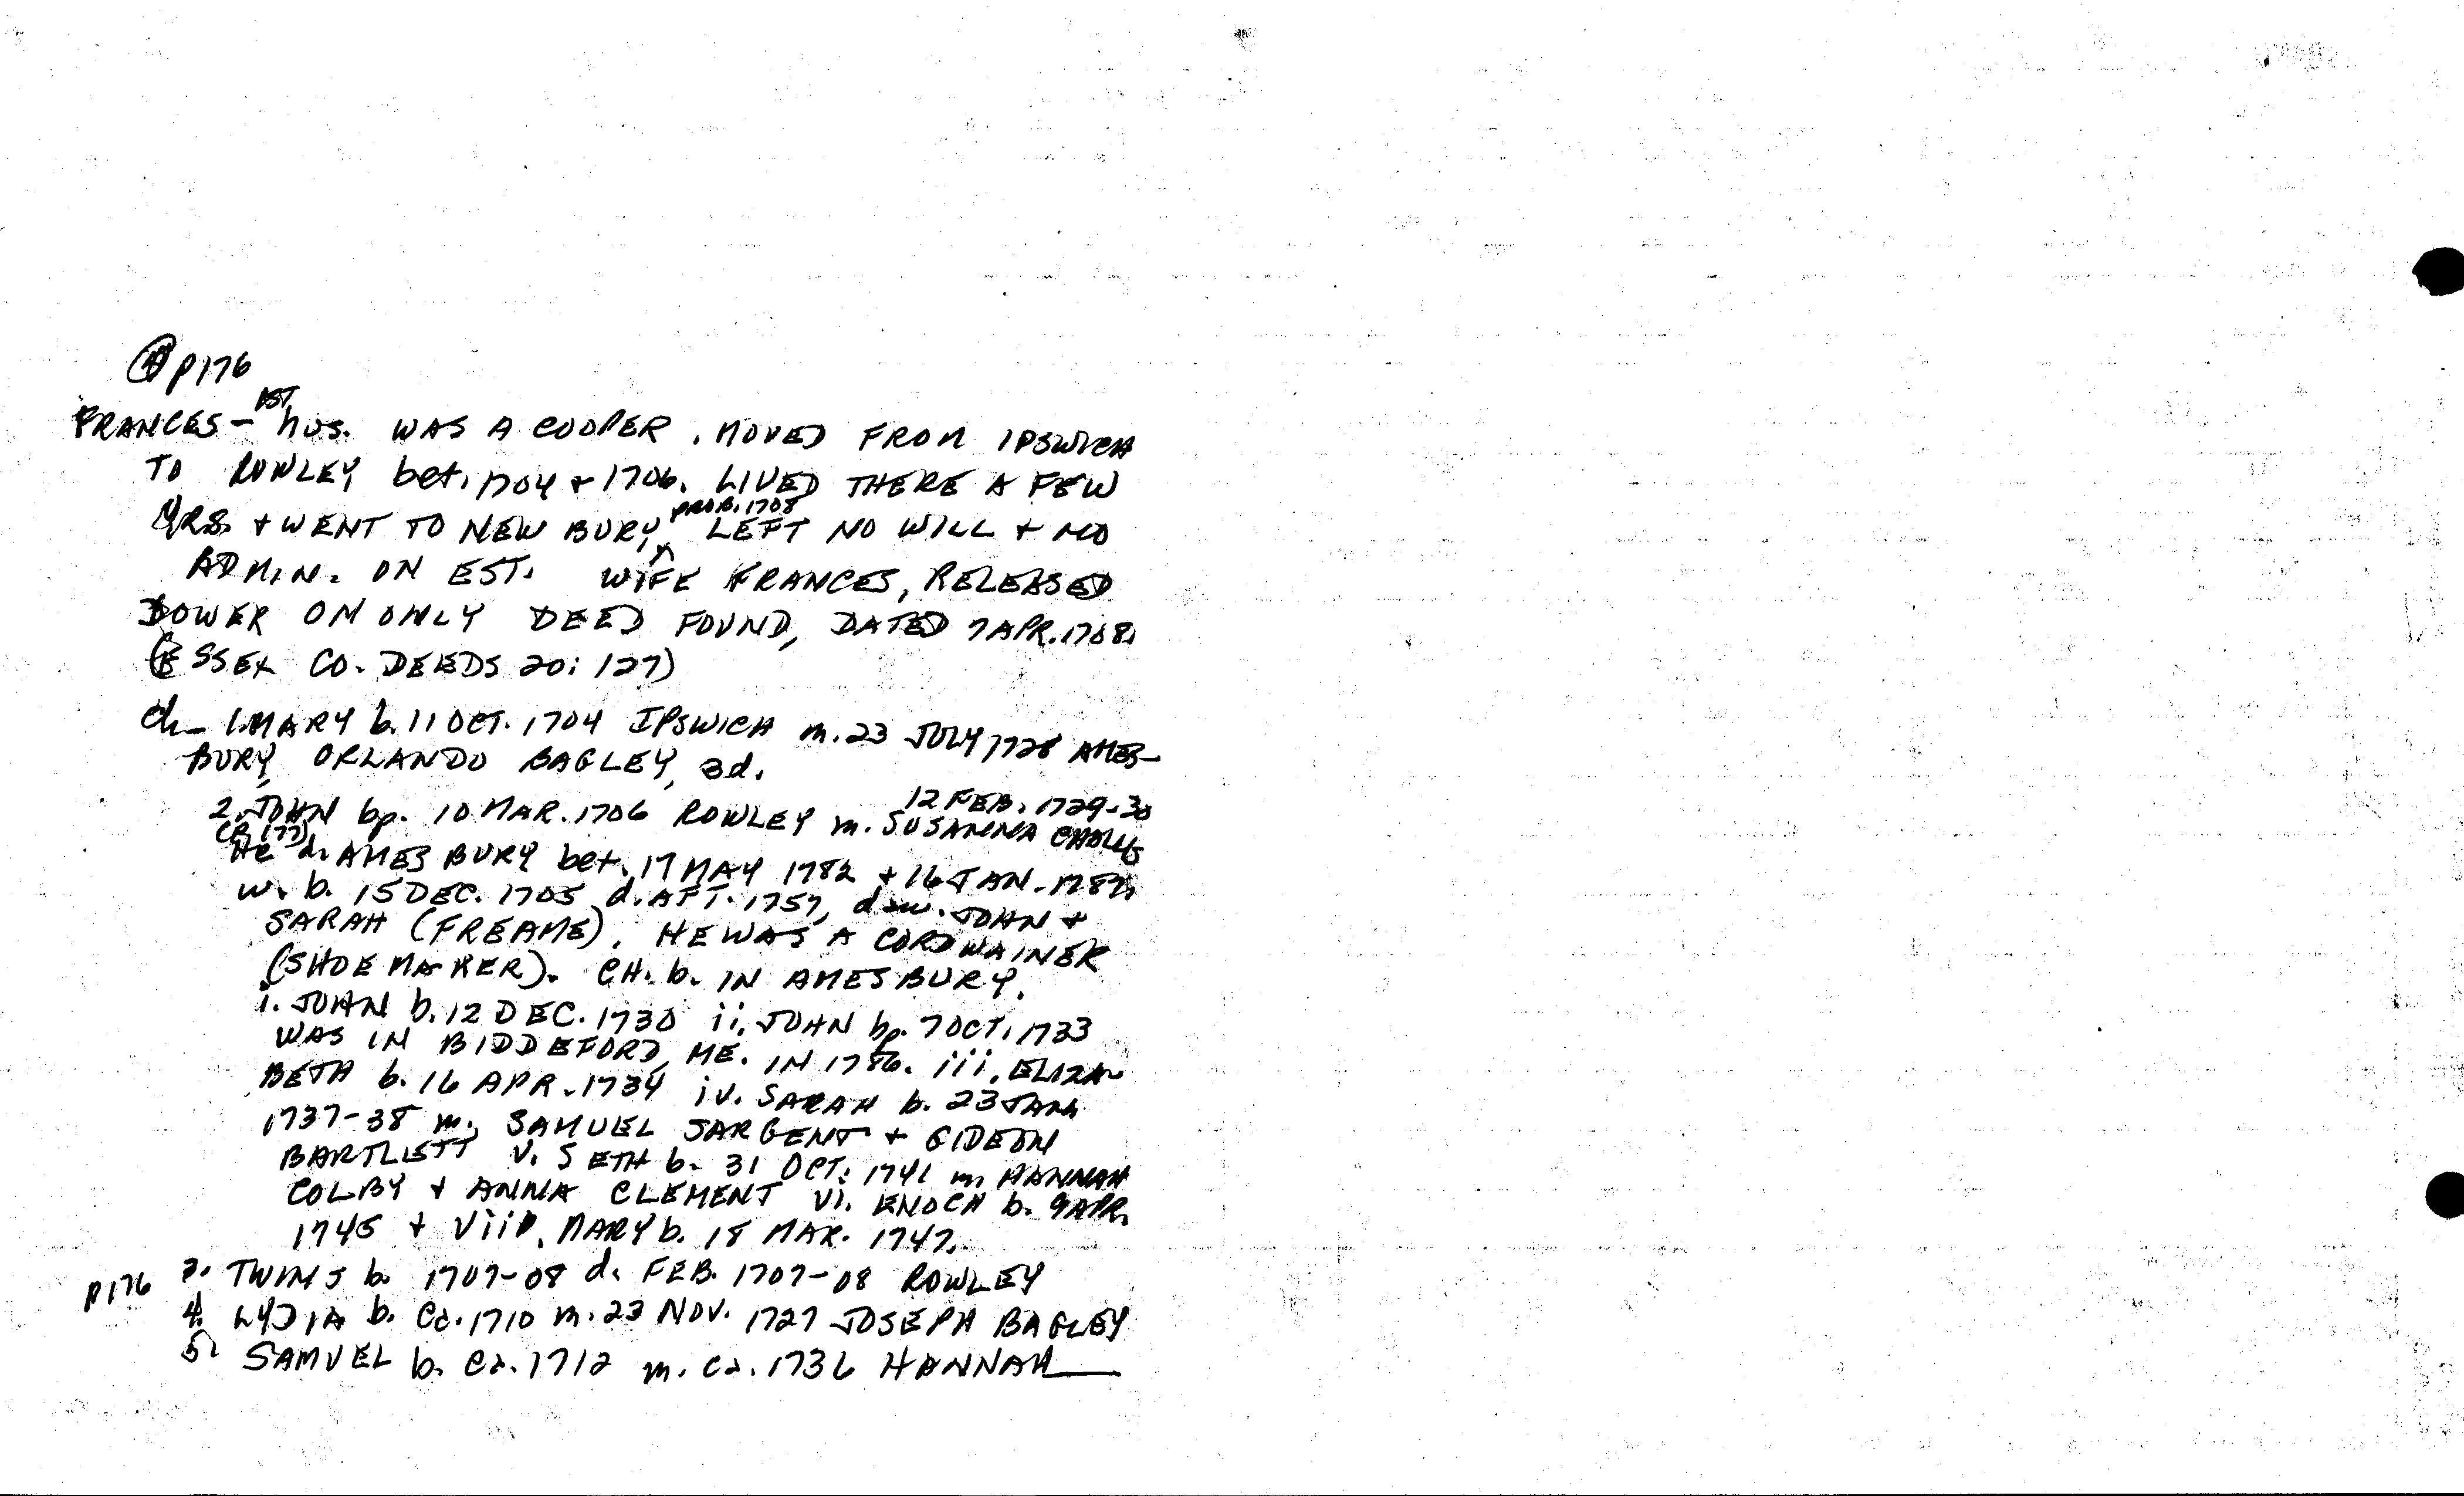 p176
FRANCES - 1ST hus. WAS A COOPER. MOVED FROM IPSWICH
TO ROWLEY bet. 1704 + 1706. LIVED THERE A FEW
YRS. + WENT TO NEWBURY, PROB. 1708 LEFT NO WILL + NO
ADMIN. ON EST. WIFE FRANCES, RELEASED
DOWER ON ONLY DEED FOUND, DATED 7 APR. 1708.
(ESSEX CO. DEEDS 20: 127)
Ch- 1. MARY b. 11 OCT. 1704 IPSWICH m. 23 JULY 1728 AMES-
BURY, ORLANDO BAGLEY, 3d.
2. JOHN bp. 10 MAR. 1706 ROWLEY m. 12 FEB. 1729-30 SUSANNA CHALLIS
(P. 177) He d. AMESBURY bet. 17 MAY 1782 + 16 JAN. 1787.
w. b. 15 DEC. 1705 d. AFT. 1757, dau. JOHN +
SARAH (FREAME). HE WAS A CORDWAINER
(SHOEMAKER). CH. b. IN AMESBURY.
i. JOHN b. 12 DEC. 1730 ii. JOHN bp. 7 OCT. 1733
WAS IN BIDDEFORD, ME. IN 1786. iii. ELIZA-
BETH b. 16 APR. 1734 iv. SARAH b. 23 JAN.
1737-38 m. SAMUEL SARGENT + GIDEON
BARTLETT v. SETH b. 31 OCT. 1741 m. HANNAH
COLBY + ANNA CLEMENT vi. ENOCH b. 9 APR.
1745 + vii. MARY b. 18 MAR. 1747.
p176 3. TWINS b. 1707-08 d. FEB. 1707-08 ROWLEY
4. LYDIA b. Ca. 1710 m. 23 NOV. 1727 JOSEPH BAGLEY
5. SAMUEL b. Ca. 1712 m. Ca. 1736 HANNAH ____